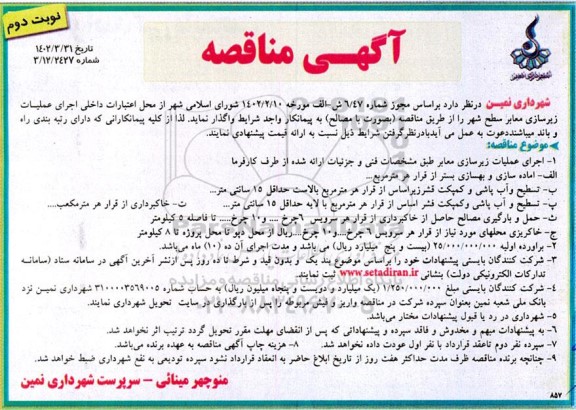 نوبت دوم
آگهی مناقصه
تاریخ ۱۴۰۲/۳/۳۱
شماره ۳/۱۲/۲۴۲۷
شهرداری نمین
شهرداری نمین درنظر دارد براساس مجوز شماره ۶/۴۷ ش-الف مورخه ۱۴۰۲/۲/۱۰ شورای اسلامی شهر از محل اعتبارات داخلی اجرای عملیات
زیرسازی معابر سطح شهر را از طریق مناقصه (بصورت با مصالح) به پیمانکار واجد شرایط واگذار نماید. لذا از کلیه پیمانکارانی که دارای رتبه بندی راه
و باند میباشنددعوت به عمل می آیدبادرنظرگرفتن شرایط ذیل نسبت به ارائه قیمت پیشنهادی نمایند.
موضوع مناقصه:
۱- اجرای عملیات زیرسازی معابر طبق مشخصات فنی و جزئیات ارائه شده از طرف کارفرما
الف- اماده سازی و بهسازی بستر از قرار هر مترمربع...
ب- تسطیح وآب پاشی و کمپکت قشرزیراساس از قرار هر مترمربع بالاست حداقل ۱۵ سانتی متر...
پ- تسطیح و آب پاشی وکمپکت فشر اساس از قرار هر مترمربع با لایه حداقل ۱۵ سانتی متر.... ت- خاکبرداری از قرار هر مترمکعب....
ث- حمل و بارگیری مصالح حاصل از خاکبرداری از قرار هر سرویس ۶چرخ .... و۱۰ چرخ..... تا فاصله ۵ کیلومتر
ج- خاکریزی محلهای مورد نیاز از قرار هر سرویس ۶ چرخ ....۱۰ چرخ....ریال از محل دپو تا محل پروژه ۵ تا ۸ کیلومتر
۲- براورده اولیه ۲۵/۰۰۰/۰۰۰/۰۰۰ (بیست و پنج میلیارد ریال) می باشد و مدت اجرای آن ده (۱۰) ماه می‌باشد.
۳- شرکت کنندگان بایستی پیشنهادات خود را براساس موضوع بند یک و بدون قید و شرط تا ده روز پس ازنشر آخرین آگهی در سامانه ستاد (سامانه
تدارکات الکترونیکی دولت) بنشانی www.setadiran.ir ثبت نمایند.
۴- شرکت کنندگان بایستی مبلغ ۱/۲۵۰/۰۰۰/۰۰۰ (یک میلیارد و دویست و پنجاه میلیون ریال) به حساب شماره ۳۱۰۰۰۰۳۵۶۹۰۰۵ شهرداری نمین نزد
بانک ملی شعبه نمین بعنوان سپرده شرکت در مناقصه واریز و فیش مربوطه را پس از بارگذاری در سایت تحویل شهرداری نمایند.
۵- شهرداری در رد یا قبول پیشنهادات مختار می‌باشد.
۶- به پیشنهادات مبهم و مخدوش و فاقد سپرده و پیشنهاداتی که پس از انقضای مهلت مقرر تحویل گردد ترتیب اثر نخواهد شد.
۷- سپرده نفر دوم تاعقد قرارداد با نفر اول عودت داده نخواهد شد. ۸- هزینه چاپ آگهی مناقصه به عهده برنده می‌باشد.
۹- چنانچه برنده مناقصه ظرف مدت حداکثر هفت روز از تاریخ ابلاغ حاضر به انعقاد قرارداد نشود سپرده تودیعی به نفع شهرداری ضبط خواهد شد.
منوچهر مینائی – سرپرست شهرداری نمین
۸۵۷